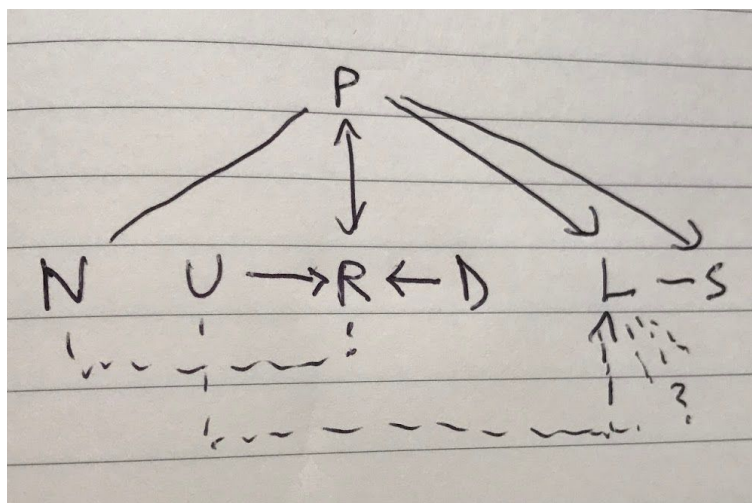 P
N U → R ← D L - S
?